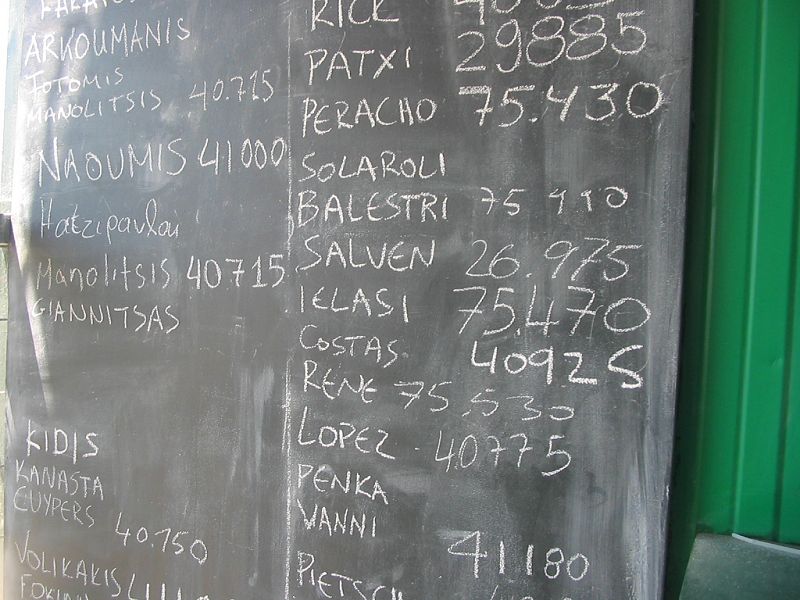 ARKOUMANIS
FOTOMIS
MANOLITSIS 40.715
NAOUMIS 41000
Hatzipavlou
Manolitsis 40715
GIANNITSAS
KIDIS
KANASTA
CUYPERS 40.750
VOLIKAKIS
RICE
PATXI 29885
PERACHO 75.430
SOLAROLI
BALESTRI 75
SALVEN 26.975
IELASI 75.470
COSTAS. 40925
RENE 75.530
LOPEZ - 40775
PENKA
VANNI
41180
PIETSCH